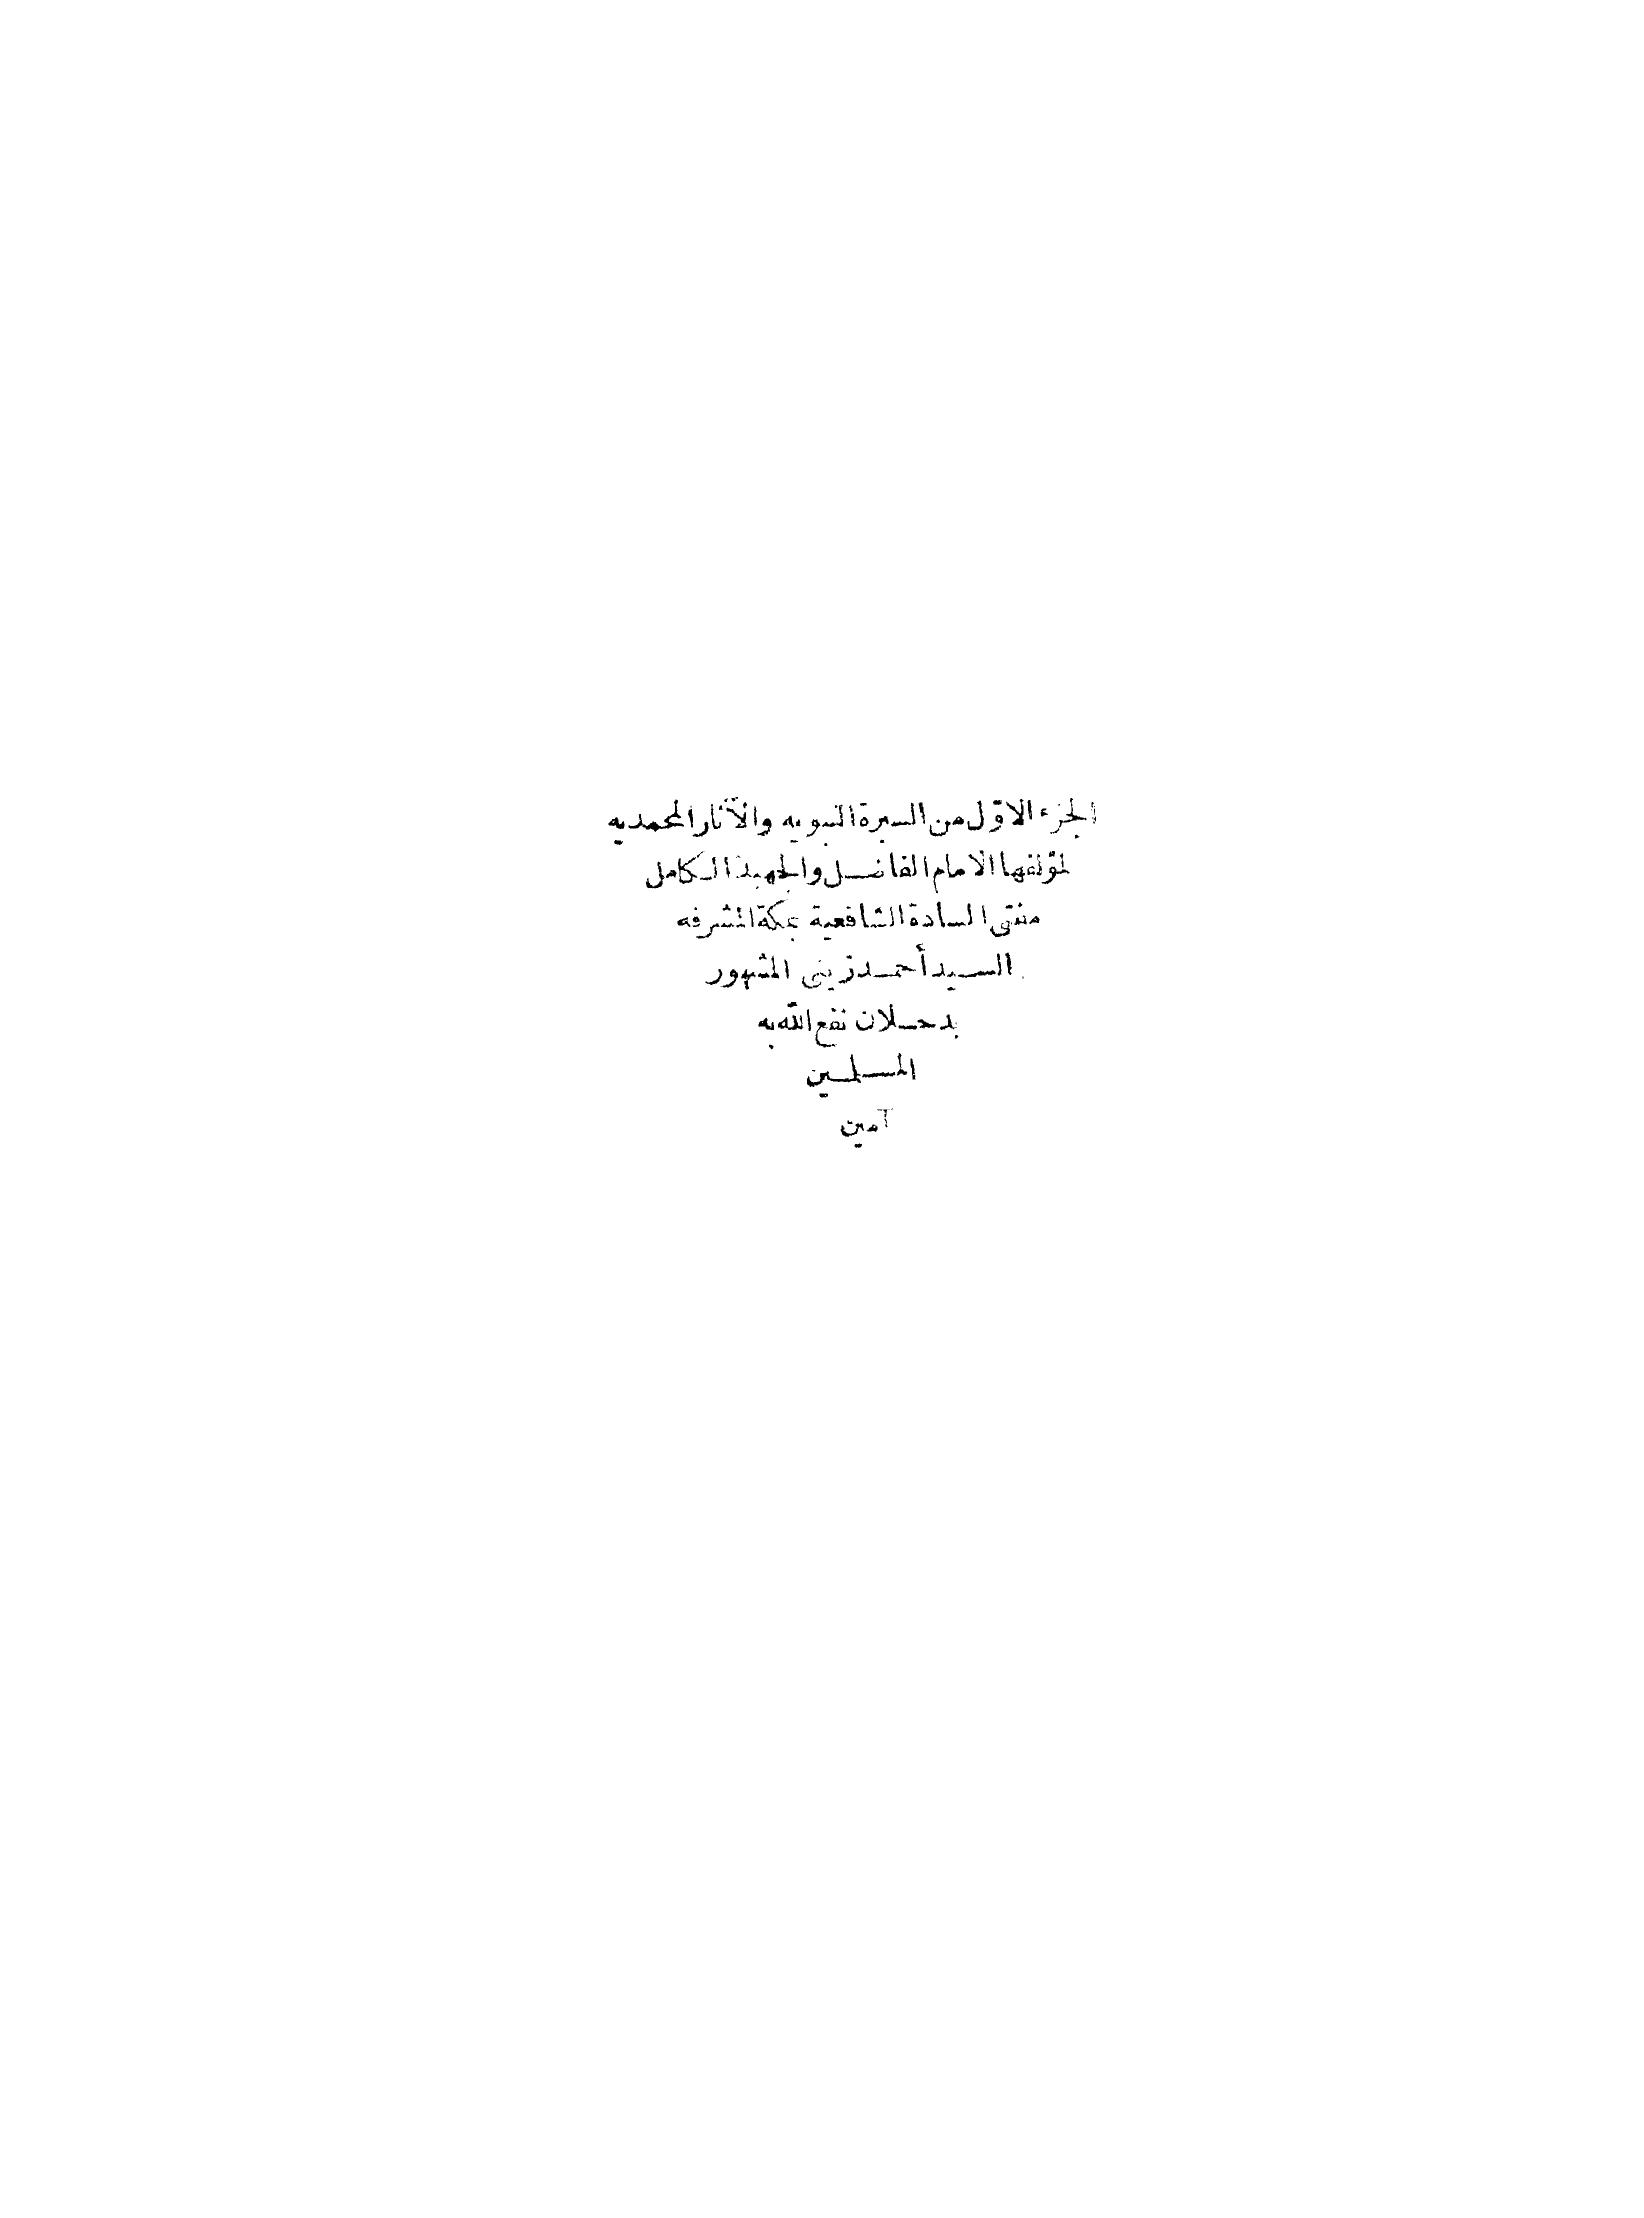 الجزء الاوّل من السيرة النبويه والآثار المحمديه
لمؤلفها الامام الفاضل والجهبذ الكامل
مفتى السادة الشافعية بمكة المشرفه
السيد أحمد زينى المشهور
بدحلان نفع الله به
المسلمين
آمين